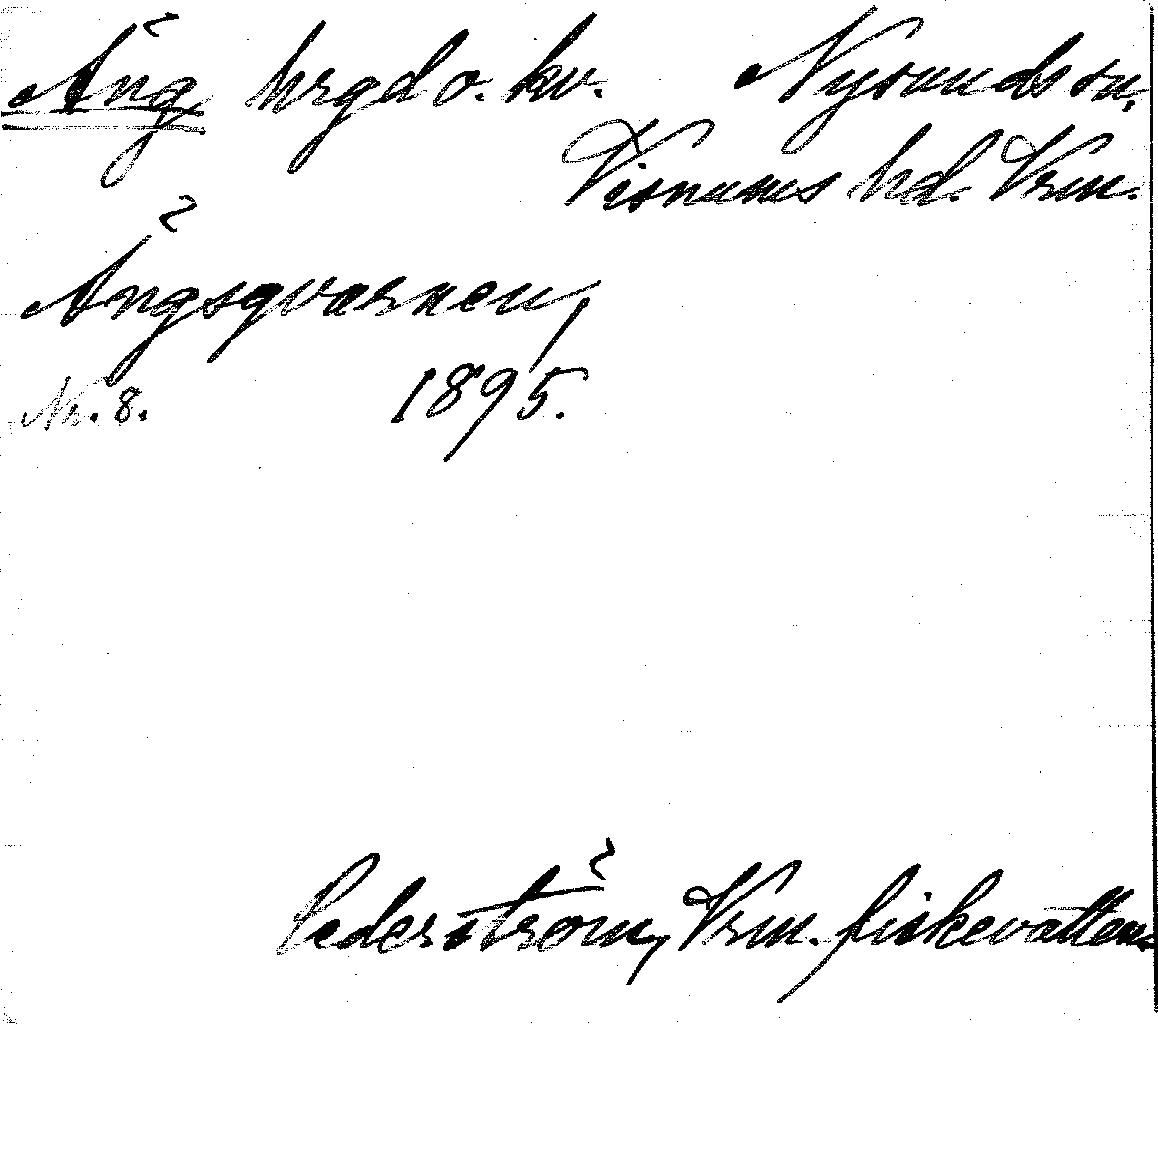 Äng hrgd o. kv. Nysunds sn.
Visnums hd. Vrm.
Ängsqvarnen,
Nr. 8. 1895.
Cederström, Vrm. fiskevatten.